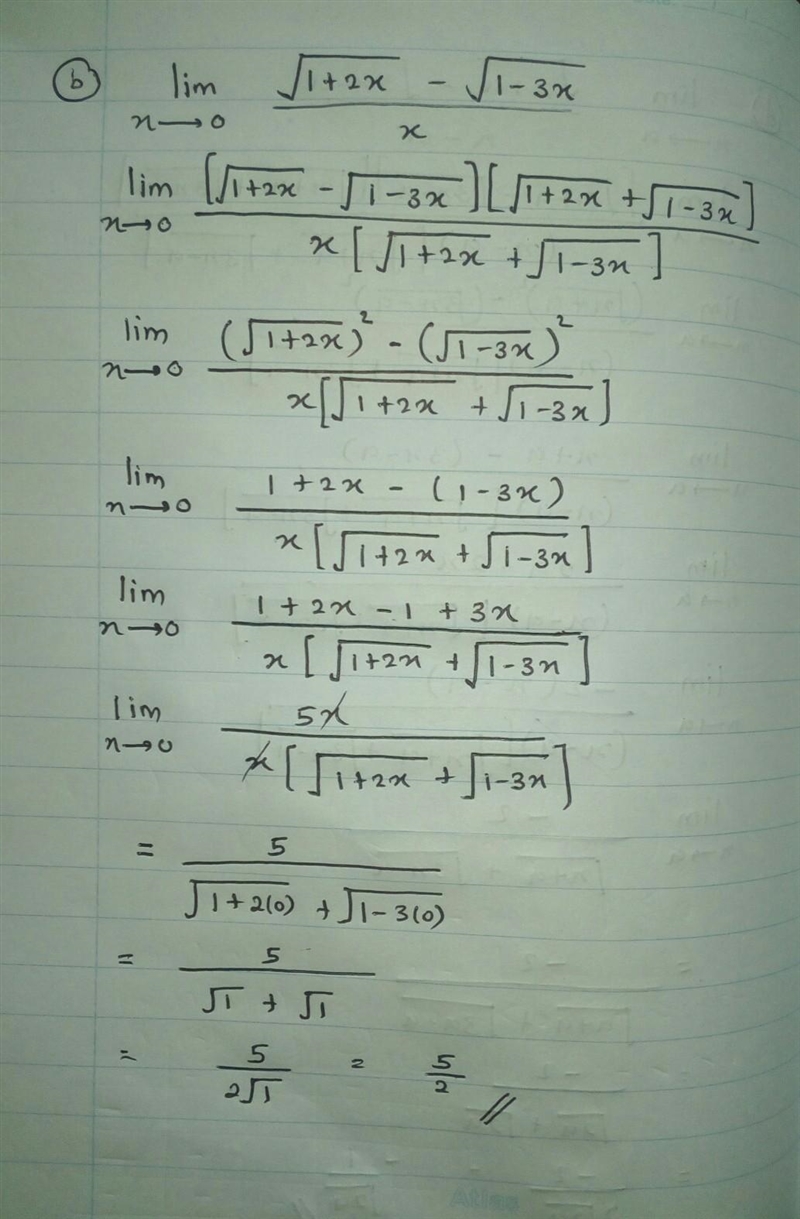 (b) lim x→0 (√(1+2x) - √(1-3x)) / x
lim x→0 [√(1+2x) - √(1-3x)][√(1+2x) + √(1-3x)] / x[√(1+2x) + √(1-3x)]
lim x→0 ((√(1+2x))² - (√(1-3x))²) / x[√(1+2x) + √(1-3x)]
lim x→0 (1+2x - (1-3x)) / x[√(1+2x) + √(1-3x)]
lim x→0 (1+2x-1+3x) / x[√(1+2x) + √(1-3x)]
lim x→0 5x / x[√(1+2x) + √(1-3x)]
= 5 / (√(1+2(0)) + √(1-3(0)))
= 5 / (√1 + √1)
= 5 / 2√1 = 5/2 //